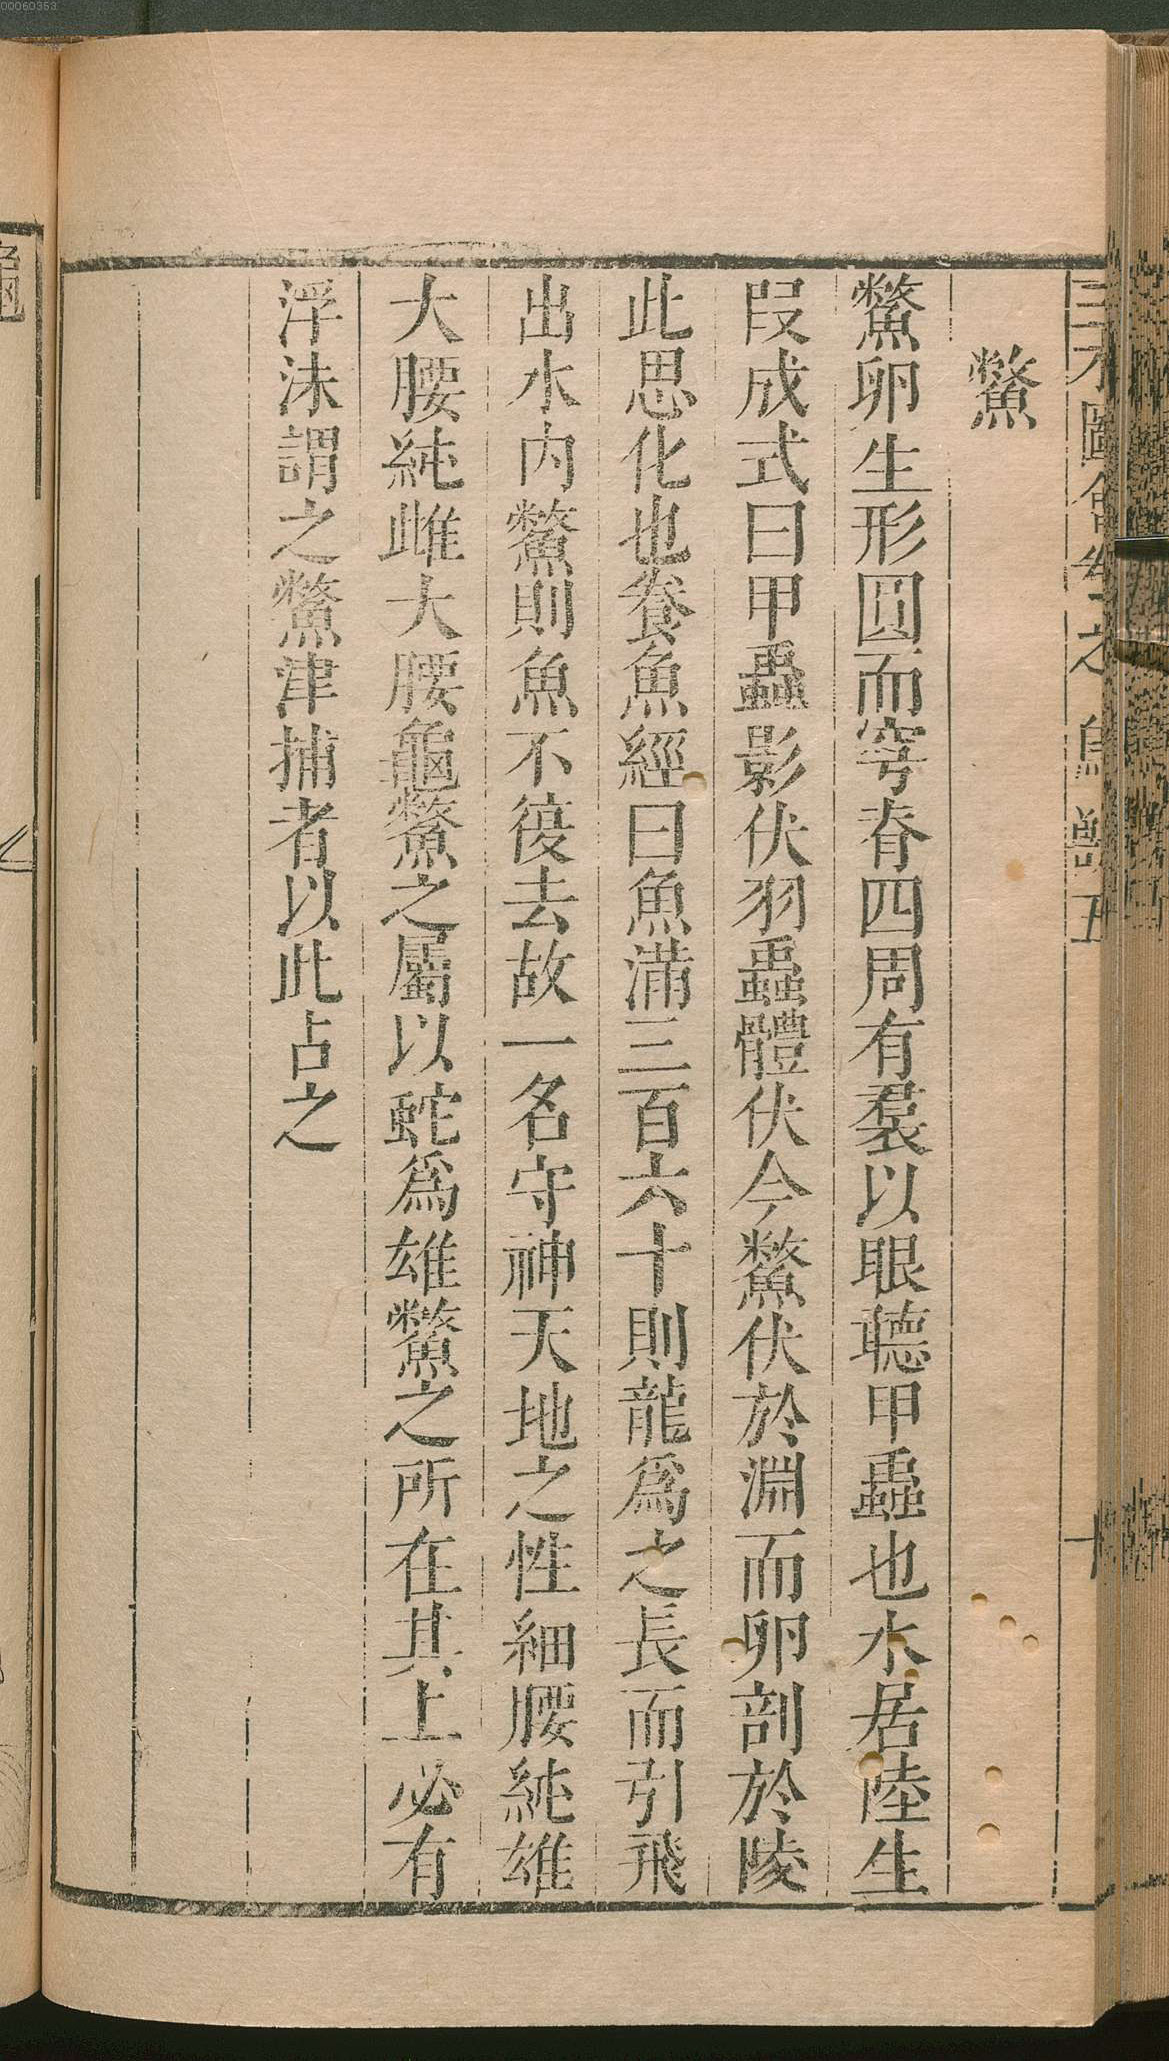 00060353
三才圖會
鳥獸五
鱉
鱉卵生形圓而穹脊四周有羣以眼聽甲蟲也水居陸生
段成式曰甲蟲影伏羽蟲體伏今鱉伏於淵而卵剖於陵
此思化也養魚經曰魚滿三百六十則龍為之長而引飛
出水內鱉則魚不復去故一名守神天地之性細腰純雄
大腰純雌大腰龜鱉之屬以蛇為雄鱉之所在其上必有
浮沫謂之鱉津捕者以此占之